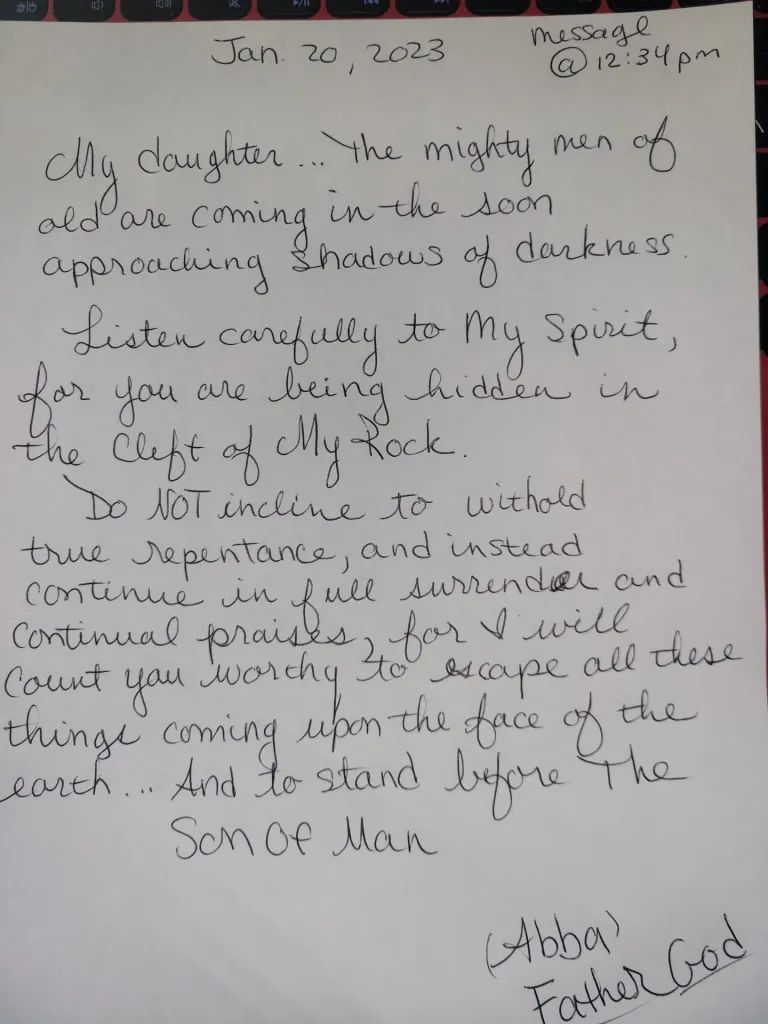 Jan. 20, 2023
message
@ 12:34pm
My daughter... The mighty men of
old are coming in the soon
approaching shadows of darkness.
Listen carefully to My Spirit,
for you are being hidden in
the Cleft of My Rock.
Do NOT incline to withold
true repentance, and instead
continue in full surrender and
continual praises, for I will
count you worthy to escape all these
things coming upon the face of the
earth... And to stand before The
Son Of Man
(Abba)
Father God